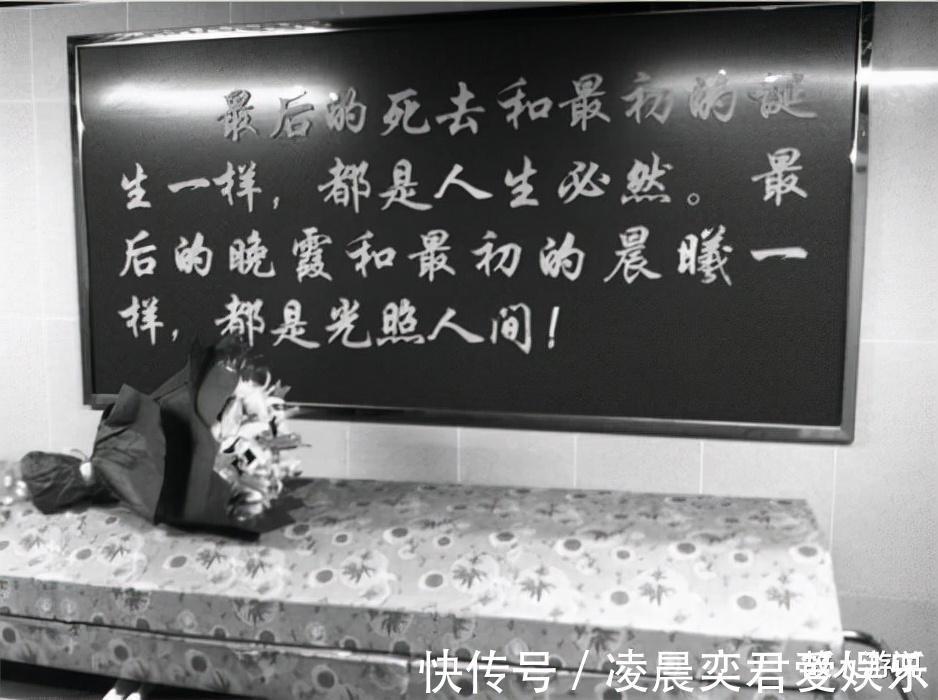 最后的死去和最初的诞
生一样，都是人生必然。最
后的晚霞和最初的晨曦一
样，都是光照人间！
快传号 / 凌晨奕君爱娱乐